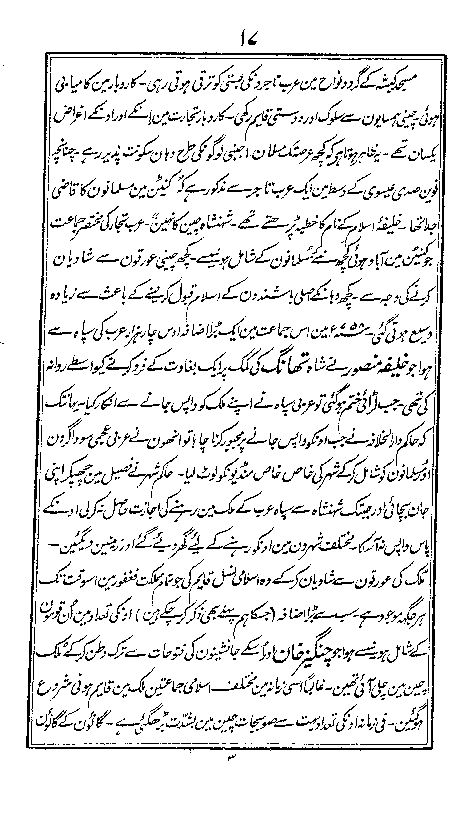 ۱۷
مسجد کیٹہ کے گرد و نواح مین عرب تاجرونکی بستی کو ترقی ہوتی رہی ۔ کاروبار مین کامیابی
ہوئی چینی ہمسایون سے سلوک اور دوستی قایم رکھی ۔ کاروبار تجارت مین انکے اور اونکے اغراض
یکسان تھے ۔ یہ ظاہر ہوتا ہر کہ کچھ عرصتک مسلمان اجنبی لوگونکی طرح وہان سکونت پذیر رہے ۔ چنانچہ
نوین صدی عیسوی کے وسط مین ایک عرب تاجر سے مذکور ہے کہ کینٹن مین مسلمانون کا قاضی
جدا تھا ۔ خلیفۂ اسلام کے نام کا خطبہ پڑھتے تھے ۔ شہنشاہ چین کا نہین ۔ عرب تجار کی مختصر جماعت
جو کینٹن مین آباد ہوئی کچھ نئے مسلمانون کے شامل ہونیسے ۔ کچھ چینی عورتون سے شادیان
کرنے کی وجہ سے ۔ کچھ وہانکے اصلی باشندون کے اسلام قبول کرلینے کے باعث سے زیادہ
وسیع ہوتی گئی ۔ ۷۵۸ء مین اس جماعت مین ایک بڑا اضافہ اوس چار ہزار عرب کی سپاہ سے
ہوا جو خلیفہ منصور نے شاہ تھانگ کی ملک پر ایک بغاوت کے فرو کرنے کیواسطے روانہ
کی تھی ۔ جب لڑائی ختم ہوگئی تو عربی سپاہ نے اپنے ملک کو واپس جانے سے انکار کیا ۔ یہانتک
کہ حاکم دارالخلافہ نے جب اونکو واپس جانے پر مجبور کرنا چاہا تو انھون نے عربی عجمی سوداگرون
اور مسلمانون کو شامل کرکے شہر کی خاص خاص منڈیونکو لوٹ لیا ۔ حاکم شہر نے فصیل مین چھپکر اپنی
جان بچائی اور جبتک شہنشاہ سے سپاہ عرب کے ملک مین رہنے کی اجازت حاصل نہ کرلی اونکے
پاس واپس نہ آسکا ۔ مختلف شہرون مین اونکو رہنے کے لیے گھر دیے گئے اور زمینین دیگئین ۔
ملک کی عورتون سے شادیان کرکے وہ اسلامی نسل قایم کی جو تمام مملکت فغفور مین اسوقت تک
ہر جگہ موجود ہے سب سے بڑا اضافہ (جسکا ہم پہلے بھی ذکر کرچکے ہین) انکی تعداد مین اُن قومون
کے شامل ہونیسے ہوا جو چنگیز خان اور اسکے جانشینون کی فتوحات سے ترک وطن کرکے ملک
چین مین چلی آئی تھین ۔ غالباً اسی زمانہ مین مختلف اسلامی جماعتین ملک مین قایم ہونی شروع
ہوگئین ۔ فی زمانہ اونکی تعداد بہت سے صوبجات چین مین بشدت بڑھگئی ہے ۔ گانوُن کے گانوُن
۳